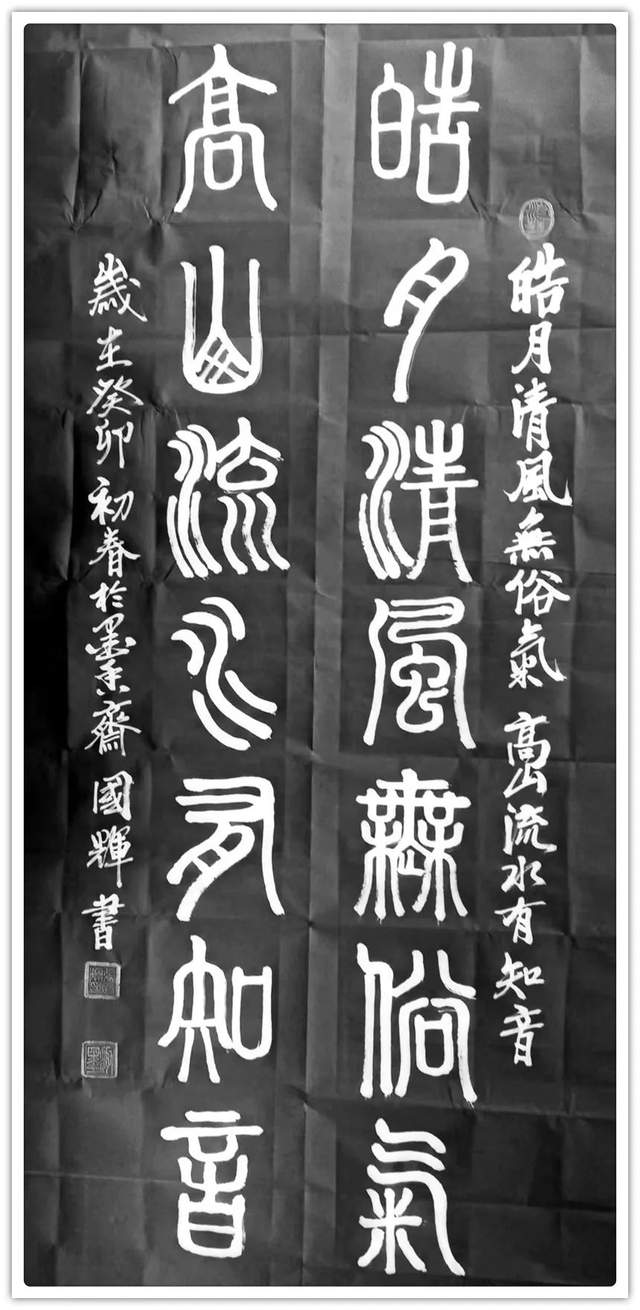 皓月清風無俗氣 高山流水有知音
皓月清風無俗氣
高山流水有知音
歲在癸卯初春於墨香齋 國輝 書